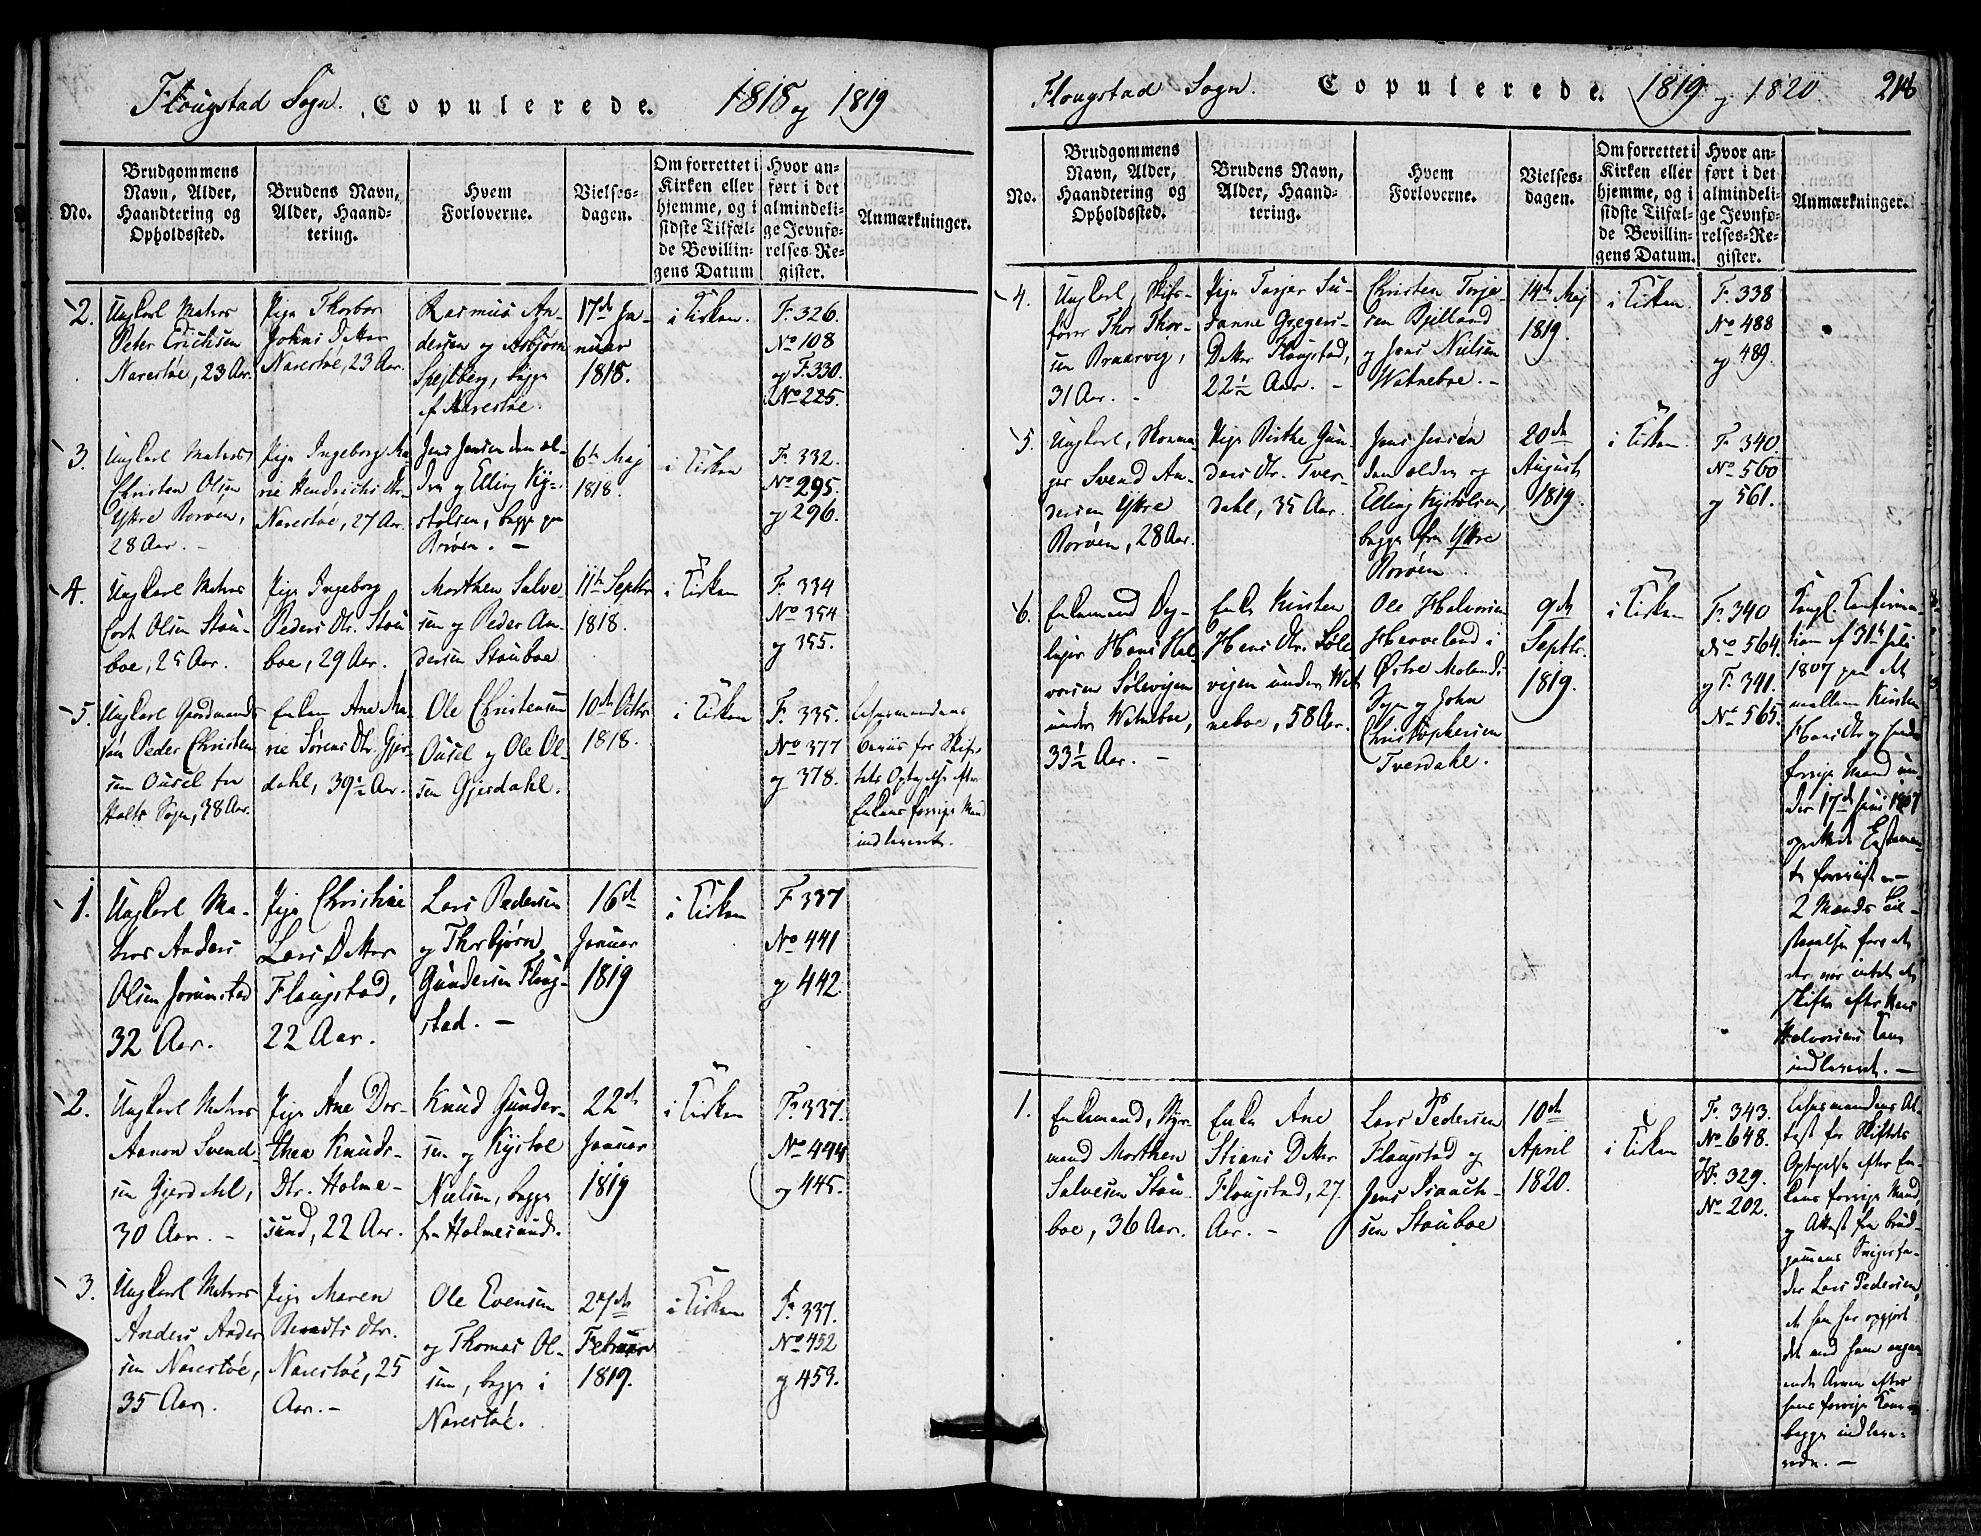 Flougstad Sogn. Copulerede. 1818 og 1819
No.
Brudgommens
Navn, Alder,
Haandtering og
Opholdssted.
Brudens Navn,
Alder, Haand-
tering.
Hvem
Forloverne.
Vielses-
dagen.
Om forrettet i
Kirken eller
hjemme, og i
sidste Tilfæl-
de Bevillin-
gens Datum
Hvor an-
ført i det
almindeli-
ge Jevnfø-
relses-Re-
gister.
Anmærkninger.
2.
Ungkarl Matros
Peter Erichsen
Narestøe, 23 Aar.
Pige Thorbor
Johns Datter
Narestøe, 23 Aar.
Rasmus An-
dersen og Asbjørn
Spejlberg, begge
af Narestøe.
17de Ja-
nuar
1818.
i Kirken.
F. 326.
No 108
og F. 330.
No 225.
3.
Ungkarl Matros
Christen Olsen
Ydtre Rorven,
28 Aar. -
Pige Ingeborg Ma-
rie Hendrichs Dtr.
Narestøe, 27 Aar.
Jens Jensen den æl-
dre og Elling Ky-
stolsen, begge paa
Rørven. -
6te Maj
1818.
i Kirken
F. 332.
No 295.
og 296.
4.
Ungkarl Matros
Cort Olsen Stou-
boe, 25 Aar.
Pige Ingeborg
Peders Dtr. Stou
boe, 29 Aar.
Morthen Salve
sen og Peder An-
dersen Stouboe
11te Septbr
1818.
i Kirken
F. 334
No 354
og 355.
5.
Ungkarl Gaardmands
søn Peder Christen
sen Ousel fra
Holts Sogn, 38 Aar.
Enken Ane Ma-
rie Sørens Dtr. Gjer
dahl, 39½ Aar.
Ole Christensen
Ousel og Ole Ol-
sen Gjerdahl.
10de Octbr
1818.
i Kirken
F. 335.
No 377
og 378.
Lehnsmandens
Beviis for Skif-
tets Optagelse efter
Enkens forrige Mand
indleveret.
1.
Ungkarl Ma-
tros Anders
Olsen Jorunstad
32 Aar.
Pige Christine
Lars Datter
Flougstad,
22 Aar.
Lars Pedersen
og Thorbjørn
Gundersen Floug-
stad. -
16de
Januar
1819
i Kirken
F. 337
No 441
og 442.
2.
Ungkarl Matros
Aanon Svend-
sen Gjerdahl,
30 Aar. -
Pige Ane Dor-
thea Knuds-
Dtr. Holme-
sund, 22 Aar.
Knud Gunder-
sen og Kystol
Nielsen, begge
fra Holmesund.
22de
Januar
1819
i Kirken
F. 337.
No 444
og 445.
3.
Ungkarl Matros
Anders Ander
sen Narestøe,
35 Aar.
Pige Maren
Bernts Dtr.
Narestøe, 25
Aar. -
Ole Evensen
og Thomas Ol-
sen, begge i
Narestøe.
27de
Februar
1819.
i Kirken
F. 337.
No 452
og 453.
Flougstad Sogn. Copulerede. 1819 og 1820
No.
Brudgommens
Navn, Alder,
Haandtering og
Opholdssted.
Brudens Navn,
Alder, Haand-
tering.
Hvem
Forloverne.
Vielses-
dagen.
Om forrettet i
Kirken eller
hjemme, og i
sidste Tilfæl-
de Bevillin-
gens Datum.
Hvor an-
ført i det
almindeli-
ge Jevnfø-
relses-Re-
gister.
Anmærkninger.
4.
Ungkarl, Skibs-
fører Thor Thor-
sen Braarvig,
31 Aar. -
Pige Tarjer Su-
sanne Gregers-
Datter Flougstad,
22½ Aar. -
Christen Terje-
sen Bjelland
og Jens Nielsen
Watneboe. -
14de Maj
1819.
i Kirken.
F. 338
No 488
og 489.
5.
Ungkarl, Skoma-
ger Svend An-
dersen Ydtre
Rorven, 28 Aar.
Pige Birthe Gun-
ders Dtr. Tver-
dahl, 35 Aar.
Jens Jensen
den ældre og
Elling Kystolsen,
begge fra Ydtre
Rorven
20de
August
1819.
i Kirken.
F. 340.
No 560
og 561.
6.
Enkemand Dag-
lejer Hans Hal-
vorsen Sølevigen
under Watneboe,
33½ Aar. -
Enke Kirsten
Hans Dtr. Søle
vigen under Wat
neboe, 58 Aar.
Ole Halvorsen
Herreland i
Østre Molands
Sogn og John
Christophersen
Tverdahl.
9de
Septbr.
1819.
i Kirken
F. 340
No 564.
og F. 341.
No 565.
Kongl. Confirma-
tion af 31te Juli
1807 paa det
mellem Kirsten
Hans Dtr og hendes
forrige Mand un-
der 17de Juni 1807
oprettede Testamen-
te foreviist -
2 Mænds Til-
staaelse for at
der var intet at
skifte efter Hans
Halvorsens Kone
indleveret. -
1.
Enkemand, Styr-
mand Morthen
Salvesen Stou-
boe, 36 Aar.
Enke Ane
Stians Datter
Flougstad, 27
Aar. -
Lars Pedersen
Flougstad og
Jens Isaach-
sen Stouboe
10de
April
1820.
i Kirken
F. 343.
No 648.
og F. 329.
No 202.
Lehnsmandens At-
test for Skiftets
Optagelse efter En-
kens forrige Mand,
og Attest fra Brud-
gommens Svigerfa-
der Lars Pedersen,
at han har opgjort
det med ham angaa-
ende Arven efter
hans forrige Kone
begge indleve-
rede. -